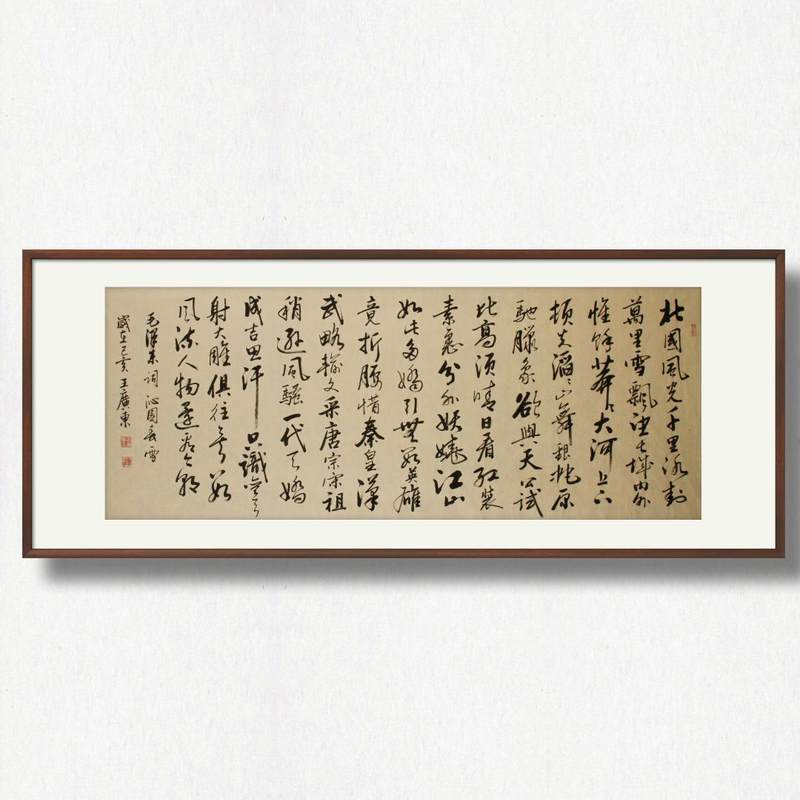 北國風光千里冰封
萬里雪飄望長城內外
惟餘莽々大河上下
頓失滔々山舞銀蛇原
馳臘象欲與天公試
比高須晴日看紅裝
素裹分外妖嬈江山
如此多嬌引無數英雄
竟折腰惜秦皇漢
武略輸文采唐宗宋祖
稍遜風騷一代天嬌
成吉思汗只識彎弓
射大雕俱往矣數
風流人物還看今朝
毛澤東詞沁園春雪
歲在己亥王廣東